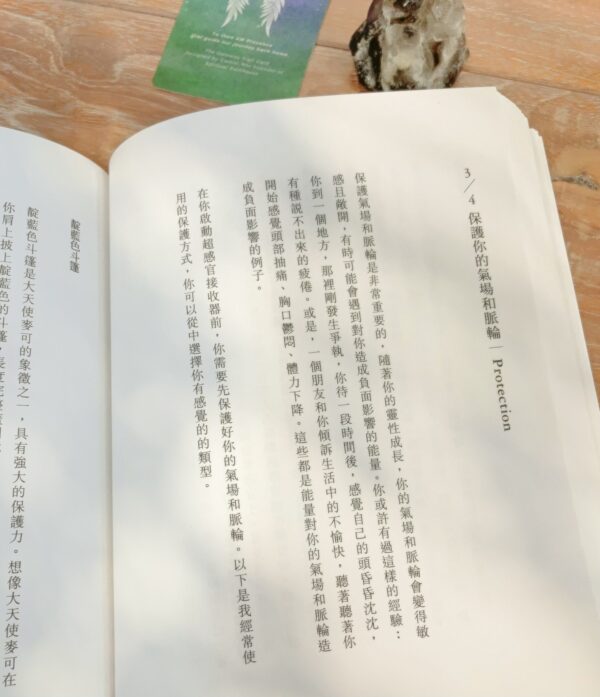 To thee our Presence
guide our journey here home.
3/4 保護你的氣場和脈輪｜Protection
保護氣場和脈輪是非常重要的，隨著你的靈性成長，你的氣場和脈輪會變得敏
感且敞開，有時可能會遇到對你造成負面影響的能量。你或許有過這樣的經驗：
你到一個地方，那裡剛發生爭執，你待一段時間後，感覺自己的頭昏昏沈沈，
有種說不出來的疲倦。或是，一個朋友和你傾訴生活中的不愉快，聽著聽著你
開始感覺頭部抽痛、胸口鬱悶、體力下降。這些都是能量對你的氣場和脈輪造
成負面影響的例子。
在你啟動超感官接收器前，你需要先保護好你的氣場和脈輪。以下是我經常使
用的保護方式，你可以從中選擇你有感覺的的類型。
靛藍色斗篷
靛藍色斗篷是大天使麥可的象徵之一，具有強大的保護力。想像大天使麥可在
你肩上披上靛藍色的斗篷，長度完整